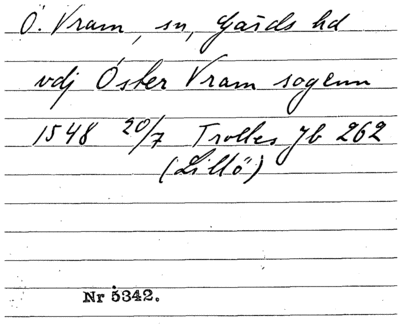 Ö. Vram, sn, Gärds hd
vdj Öster Vram sogenn
1548 20/7 Trolles Jb 262
(Lillö)
Nr 5342.